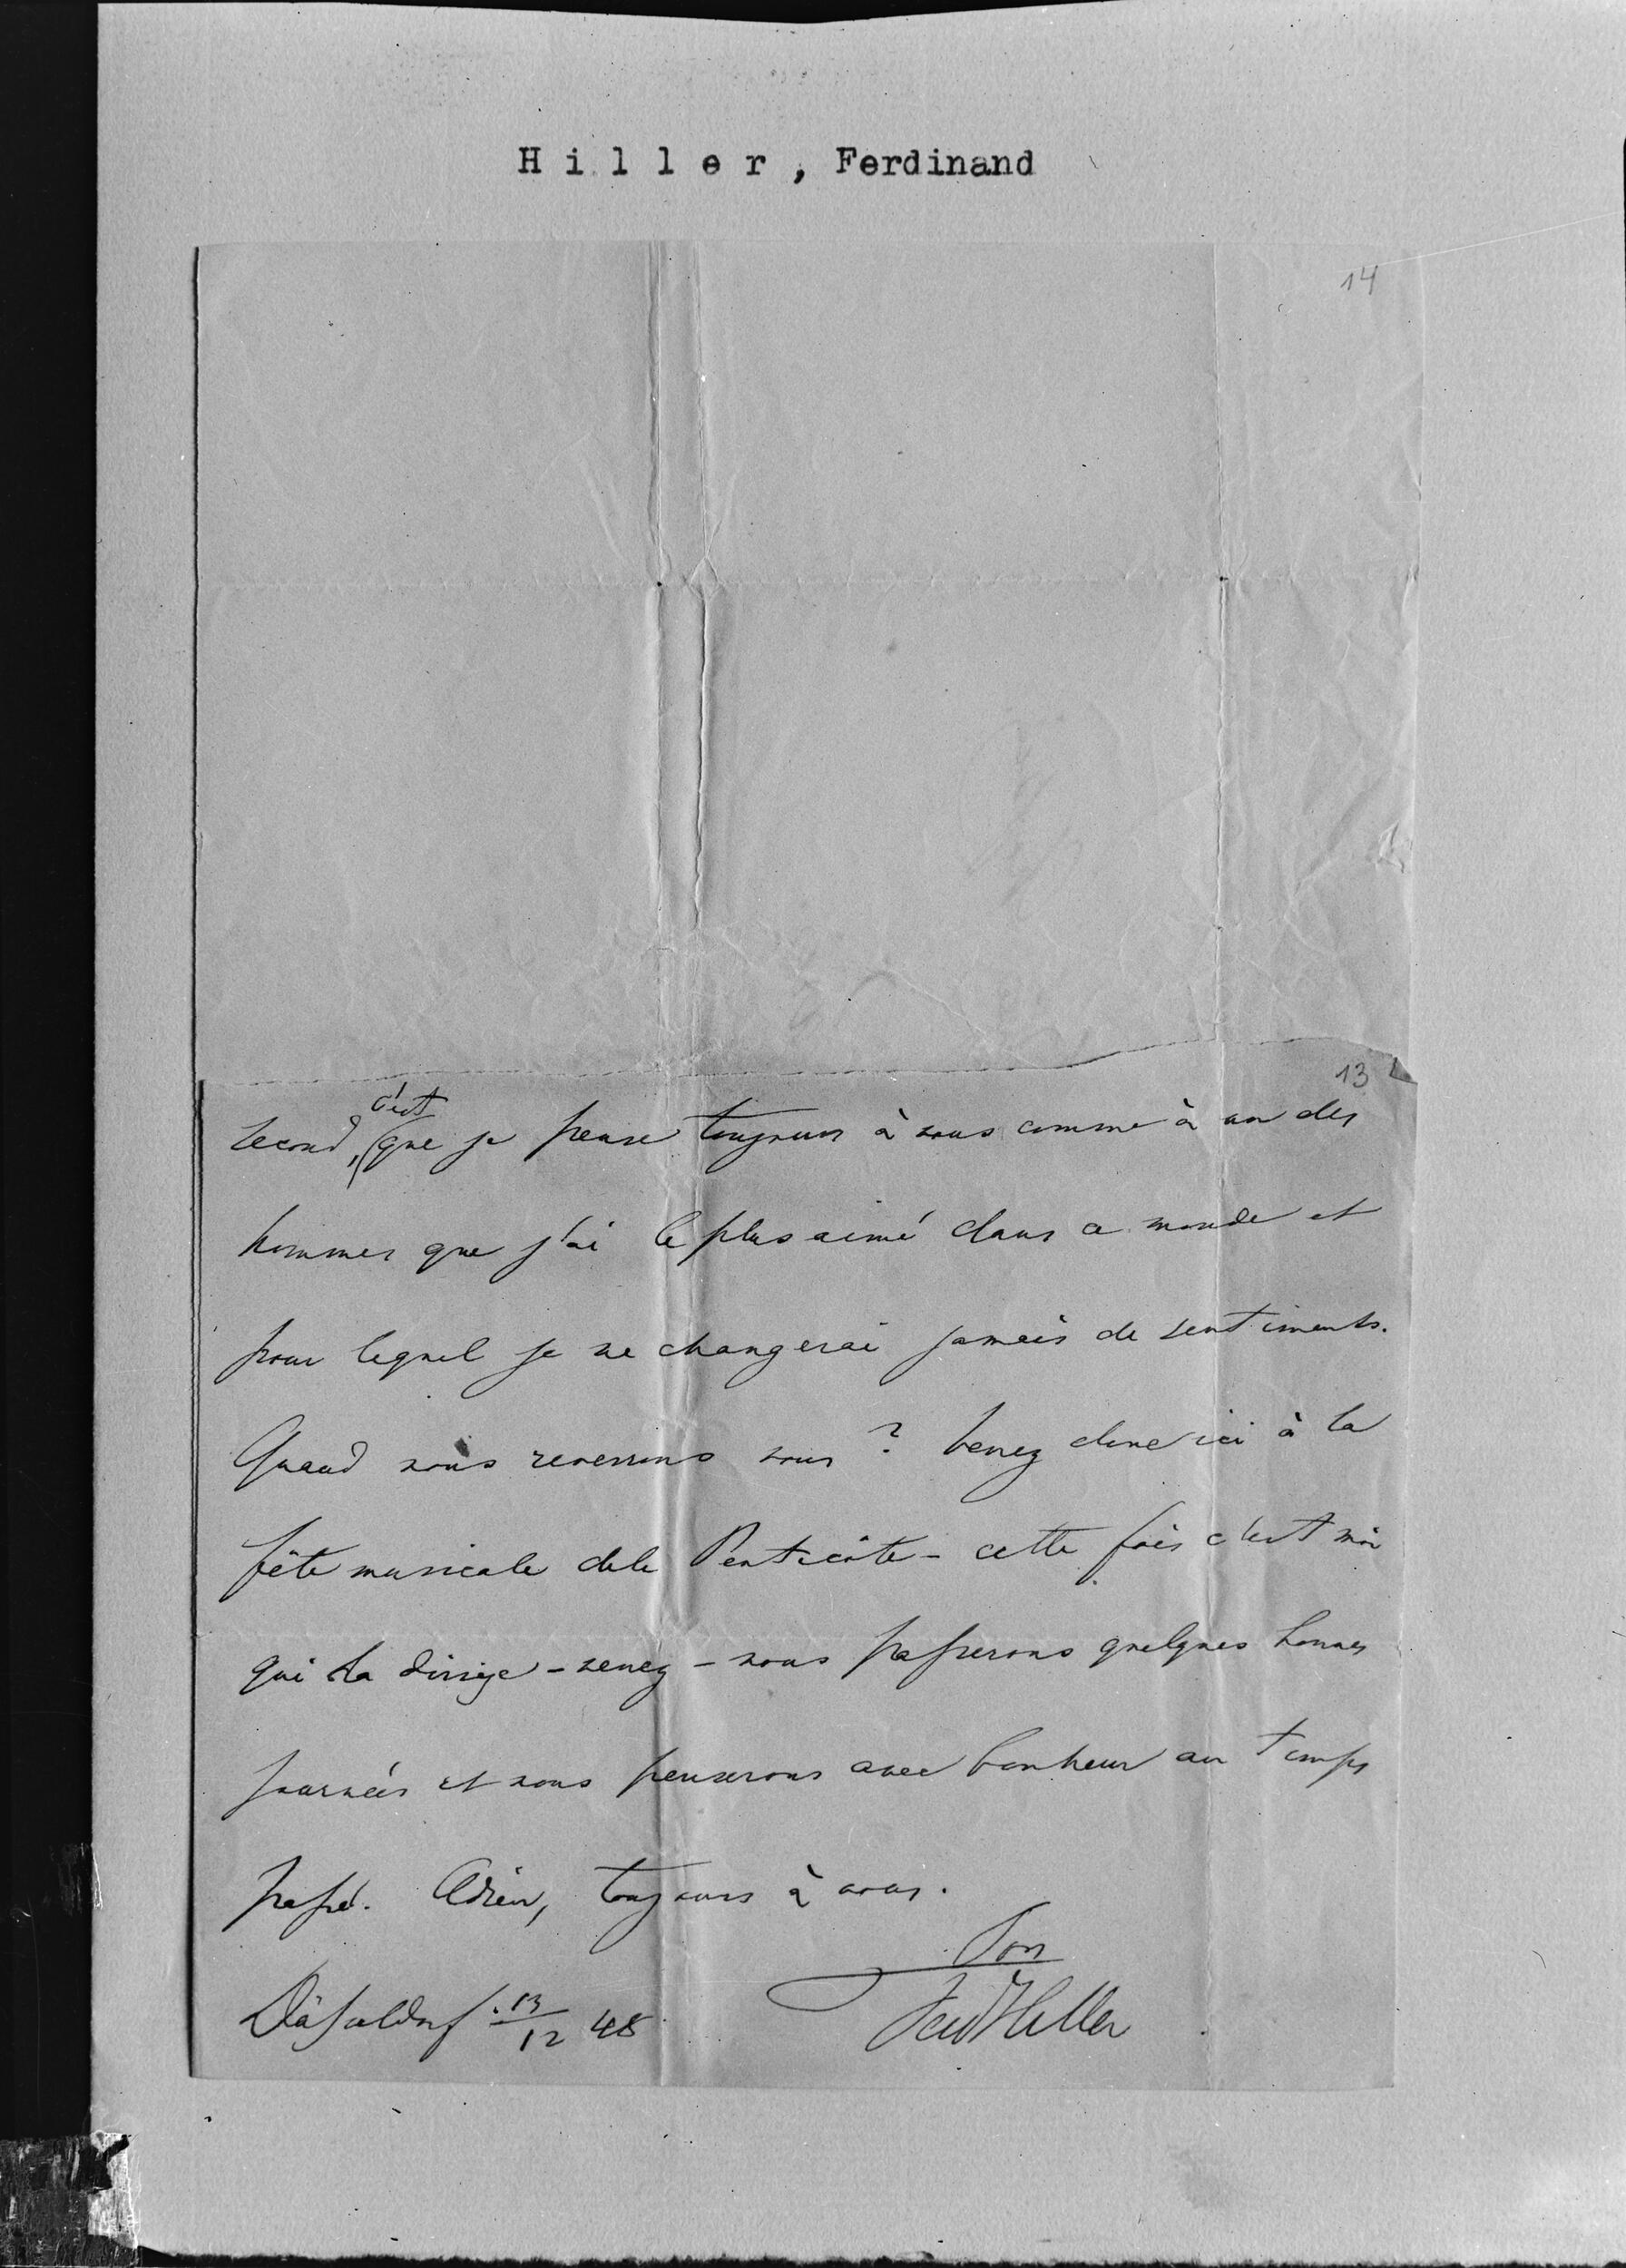 Hiller, Ferdinand
14
13
second, c'est que je pense toujours à vous comme à un des
hommes que j'ai le plus aimé dans ce monde et
pour lequel je ne changerai jamais de sentiments.
Quand nous reverrons nous? Venez donc ici à la
fête musicale de la Pentecôte - cette fois c'est moi
qui la dirige - venez - nous passerons quelques bonnes
journées et nous penserons avec bonheur au temps
passé. Adieu, toujours à vous.
Ferd Hiller
Düsseldorf 13/12 48